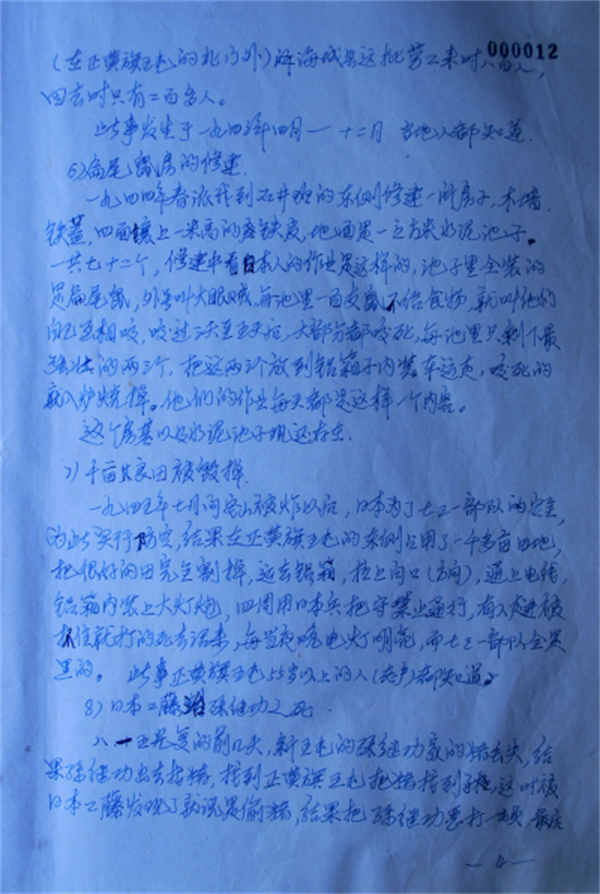 000012
(在正黄旗五屯的北门外)听海城县这批劳工来时八百人,
回去时只有二百多人。
此事发生于一九四五年四月一十二月 当地人都知道.
6)扁尾鼠房的修建.
一九四四年春派我到石井班的东侧修建一所房子,木墙.
铁盖,四面镶上一米高的废铁皮,地面是一立方米水泥池子.
一共七十二个,修建中看日本人的作业是这样的,池子里全装的
是扁尾鼠,外号叫大眼贼,每池里一百支鼠不给食物,就叫他们
自己互相咬,咬过三天至五天后,大部分都咬死,每池里只剩下最
强壮的两三个,把这两三个放到铝箱子内装车运走,咬死的
就入炉烧掉。他们的作业每天都是这样一个内容。
这个房基以及水泥池子现还存在.
7)千亩良田被毁掉.
一九四五年七月间鞍山被炸以后,日本为了七三一部队的安全,
为此实行防空,结果在正黄旗五屯的东侧占用了一千多亩田地,
把很好的田完全割掉,运去铝箱,拉上向口(方向),通上电线,
铝箱内装上大灯炮,四周用日本兵把守禁止通行,有人走进被
抓住就打的死去活来,每当夜晚电灯明亮,而七三一部队全是
黑的。 此事正黄旗五屯55岁以上的人(老户)都知道。
8)日本工藤治 孙继功之死.
八一五光复的前几天,新五屯的孙继功家的猪丢失,结
果孙继功出去找猪,找到正黄旗五屯把猪找到了,这时被
日本工藤发现了就说是偷猪,结果把孙继功恶打一顿,最后
—4—